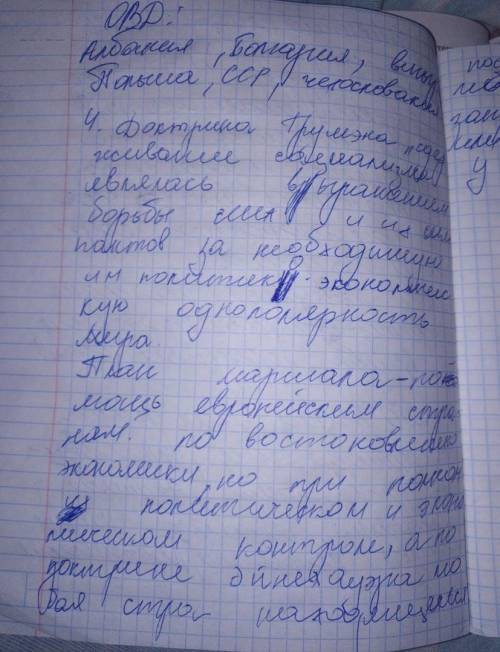 ОВД:
Албания, Болгария,
Польша, ССР, чехословакия
4. Доктрина Трумэна "сдер
живание социализма
являлась выражением
борьбы сил и их
пактов за необходимую
им политико экономичес
кую однополярность
мира.
План маршала - по
мощь европейским стра
нам. по востоковлению
экономики, но при полном
политическом и эконо
мическом контроле, а по
доктрине Эйнехауэна лю
бая стра находящаяся
У